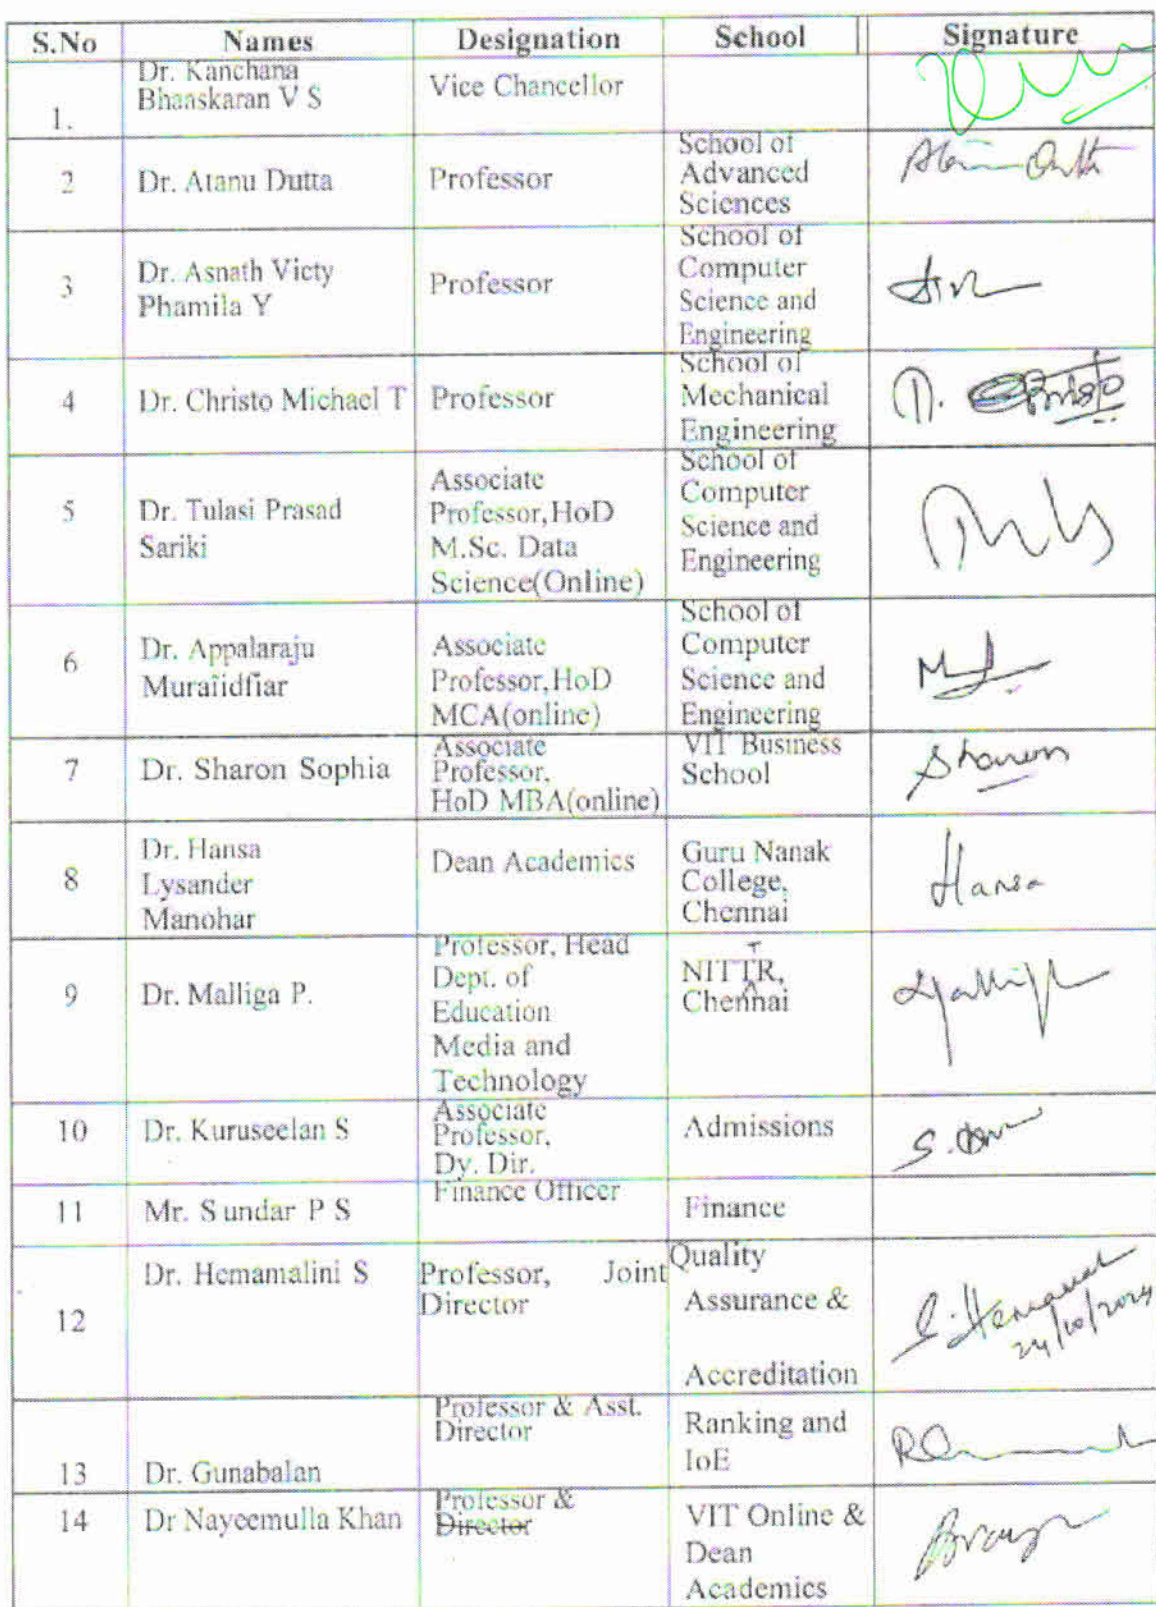 S.No Names Designation School Signature
1. Dr. Kanchana
Bhaaskaran V S
Vice Chancellor
2 Dr. Atanu Dutta Professor School of
Advanced
Sciences
3 Dr. Asnath Victy
Phamila Y
Professor
School of
Computer
Science and
Engineering
4 Dr. Christo Michael T Professor School of
Mechanical
Engineering
T. Christo
5 Dr. Tulasi Prasad
Sariki
Associate
Professor,HoD
M.Sc. Data
Science(Online)
School of
Computer
Science and
Engineering
6 Dr. Appalaraju
Associate
Professor,HoD
MCA(online)
School of
Computer
Science and
Engineering
7 Dr. Sharon Sophia Associate
Professor,
HoD MBA(online)
VIT Business
School
Sharon
8 Dr. Hansa
Lysander
Manohar
Dean Academics
Guru Nanak
College,
Chennai
Hansa
9 Dr. Malliga P.
Professor, Head
Dept. of
Education
Media and
Technology
T
NITTR,
Chennai
10 Dr. Kuruseelan S Associate
Professor,
Dy. Dir.
Admissions
11 Mr. Sundar P S Finance Officer Finance
12 Dr. Hemamalini S Professor, Joint
Director
Quality
Assurance &
Accreditation
24/10/2024
13 Dr. Gunabalan Professor & Asst.
Director
Ranking and
IoE
14 Dr Nayeemulla Khan Professor &
Director
VIT Online &
Dean
Academics